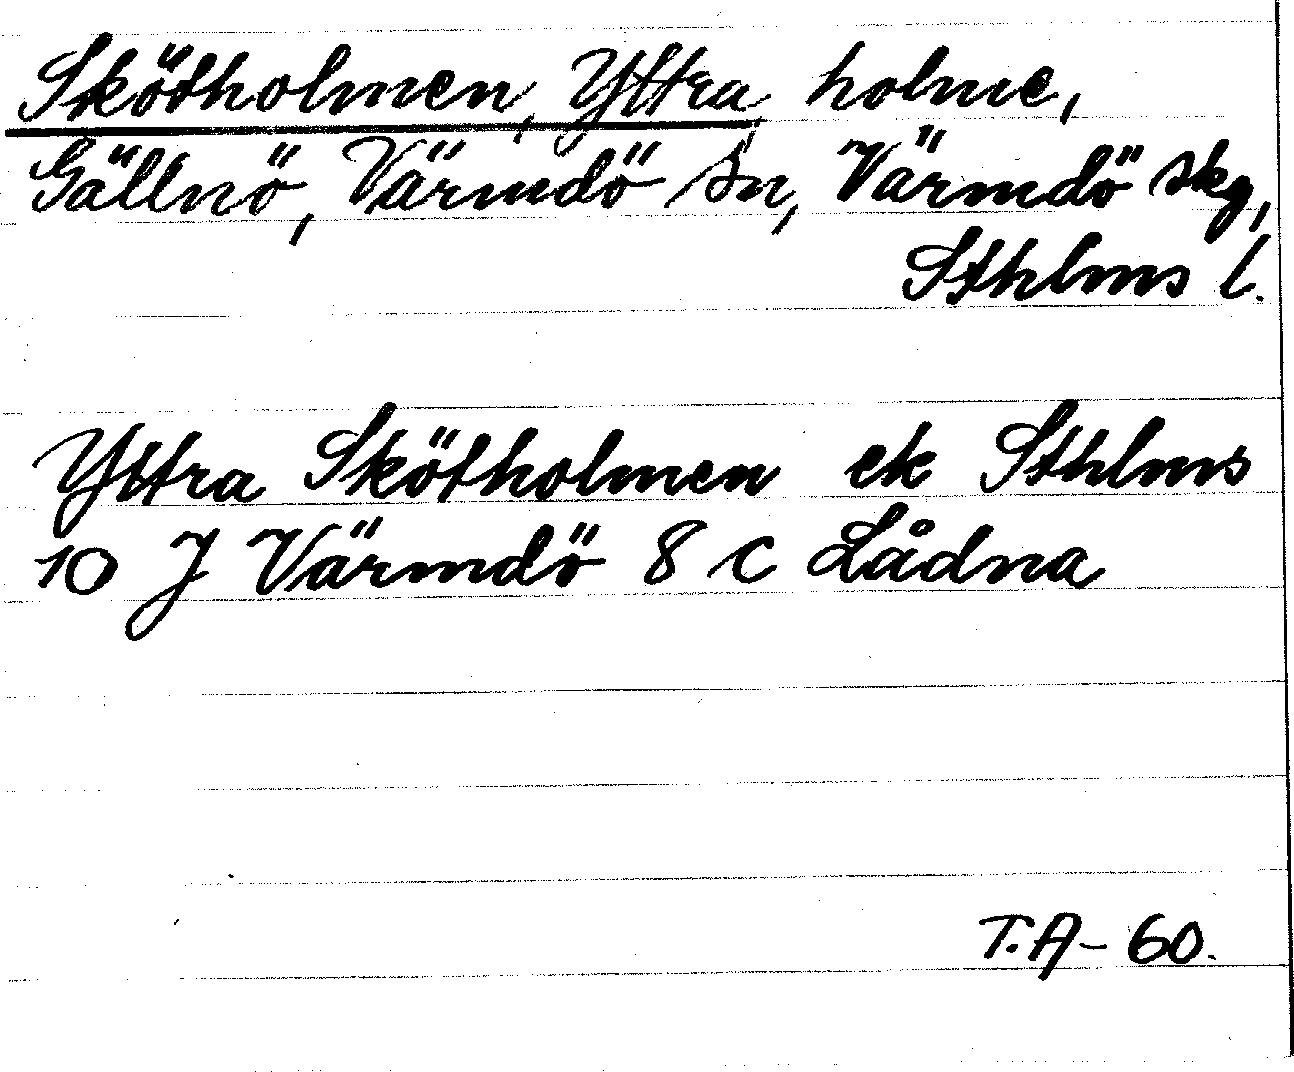 Skötholmen, Yttra, holme,
Gällnö, Värmdö sn, Värmdö skg,
Sthlms l.
Yttra Skötholmen ek Sthlms
10 J Värmdö 8 c Lådna
T.A-60.